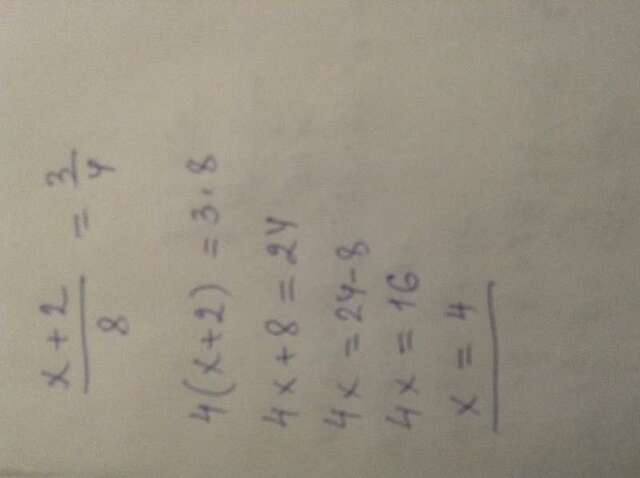 x + 2 / 8 = 3 / 4
4(x+2) = 3·8
4x+8 = 24
4x = 24-8
4x = 16
x = 4